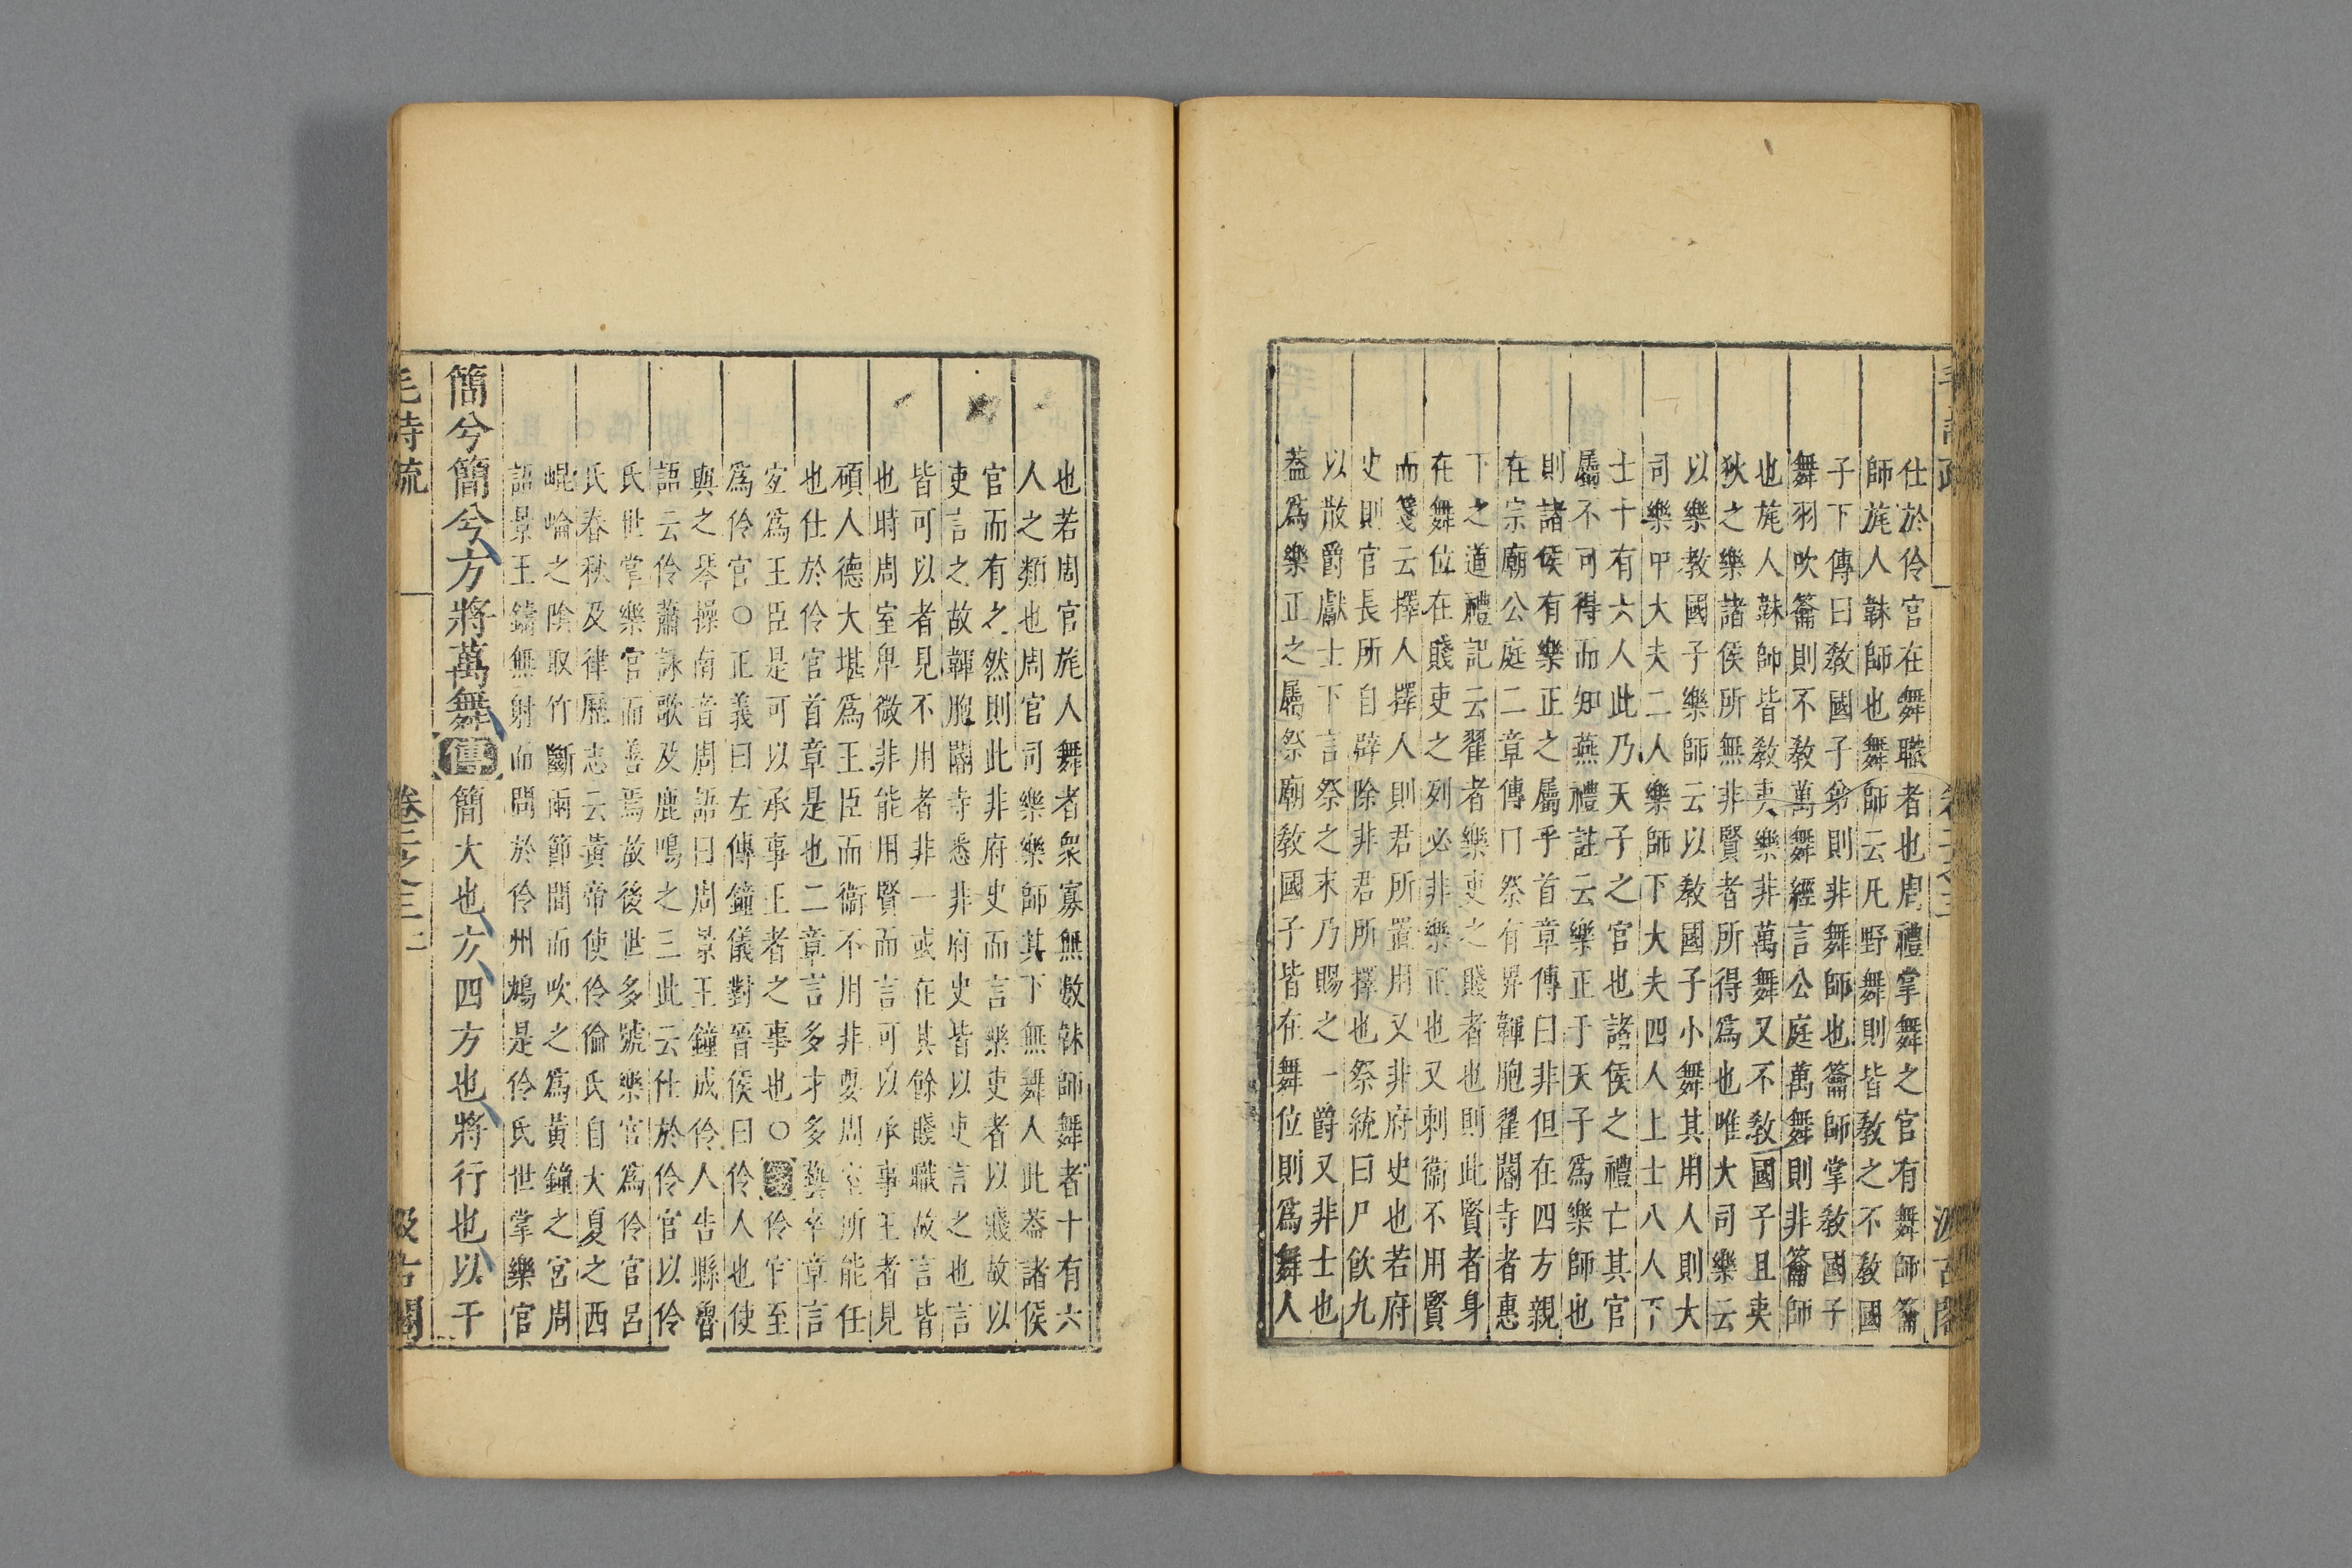 仕於伶官在舞職者也周禮掌舞之官有舞師籥
師旄人韎師也舞師云凡野舞則皆教之不教國
子下傳曰教國子弟則非舞師也籥師掌教國子
舞羽吹籥則不教萬舞經言公庭萬舞則非籥師
也旄人韎師皆教夷樂非萬舞又不教國子且夷
狄之樂諸侯所無非賢者所得爲也唯大司樂云
以樂教國子樂師云以教國子小舞其用人則大
司樂中大夫二人樂師下大夫四人上士八人下
士十有六人此乃天子之官也諸侯之禮亡其官
屬不可得而知燕禮註云樂正于天子爲樂師也
則諸侯有樂正之屬乎首章傳曰非但在四方親
在宗廟公庭二章傳曰祭有畀韗胞翟閽寺者惠
下之道禮記云翟者樂吏之賤者也則此賢者身
在舞位在賤吏之列必非樂正也又刺衞不用賢
而箋云擇人擇人則君所置用又非府史也若府
史則官長所自辟除非君所擇也祭統曰尸飲九
以散爵獻士下言祭之末乃賜之一爵又非士也
蓋爲樂正之屬祭廟教國子皆在舞位則爲舞人
也若周官旄人舞者衆寡無數韎師舞者十有六
人之類也周官司樂樂師其下無舞人此蓋諸侯
官而有之然則此非府史而言樂吏者以賤故以
吏言之故韗胞閽寺悉非府史皆以吏言之也言
皆可以者見不用者非一或在其餘賤職故言皆
也時周室卑微非能用賢而言可以承事王者見
碩人德大堪爲王臣而衞不用非要周室所能任
也仕於伶官首章是也二章言多才多藝卒章言
宐爲王臣是可以承事王者之事也○箋伶官至
爲伶官○正義曰左傳鐘儀對晉侯曰伶人也使
與之琴操南音周語曰周景王鐘成伶人告縣魯
語云伶蕭詠歌及鹿鳴之三此云仕於伶官以伶
氏世掌樂官而善焉故後世多號樂官爲伶官呂
氏春秋及律歷志云黃帝使伶倫氏自大夏之西
崐崘之陰取竹斷兩節間而吹之爲黃鐘之宮周
語景王鑄無射而問於伶州鳩是伶氏世掌樂官
簡兮簡兮方將萬舞傳簡大也方四方也將行也以干
毛詩疏 卷二之三 二 汲古閣